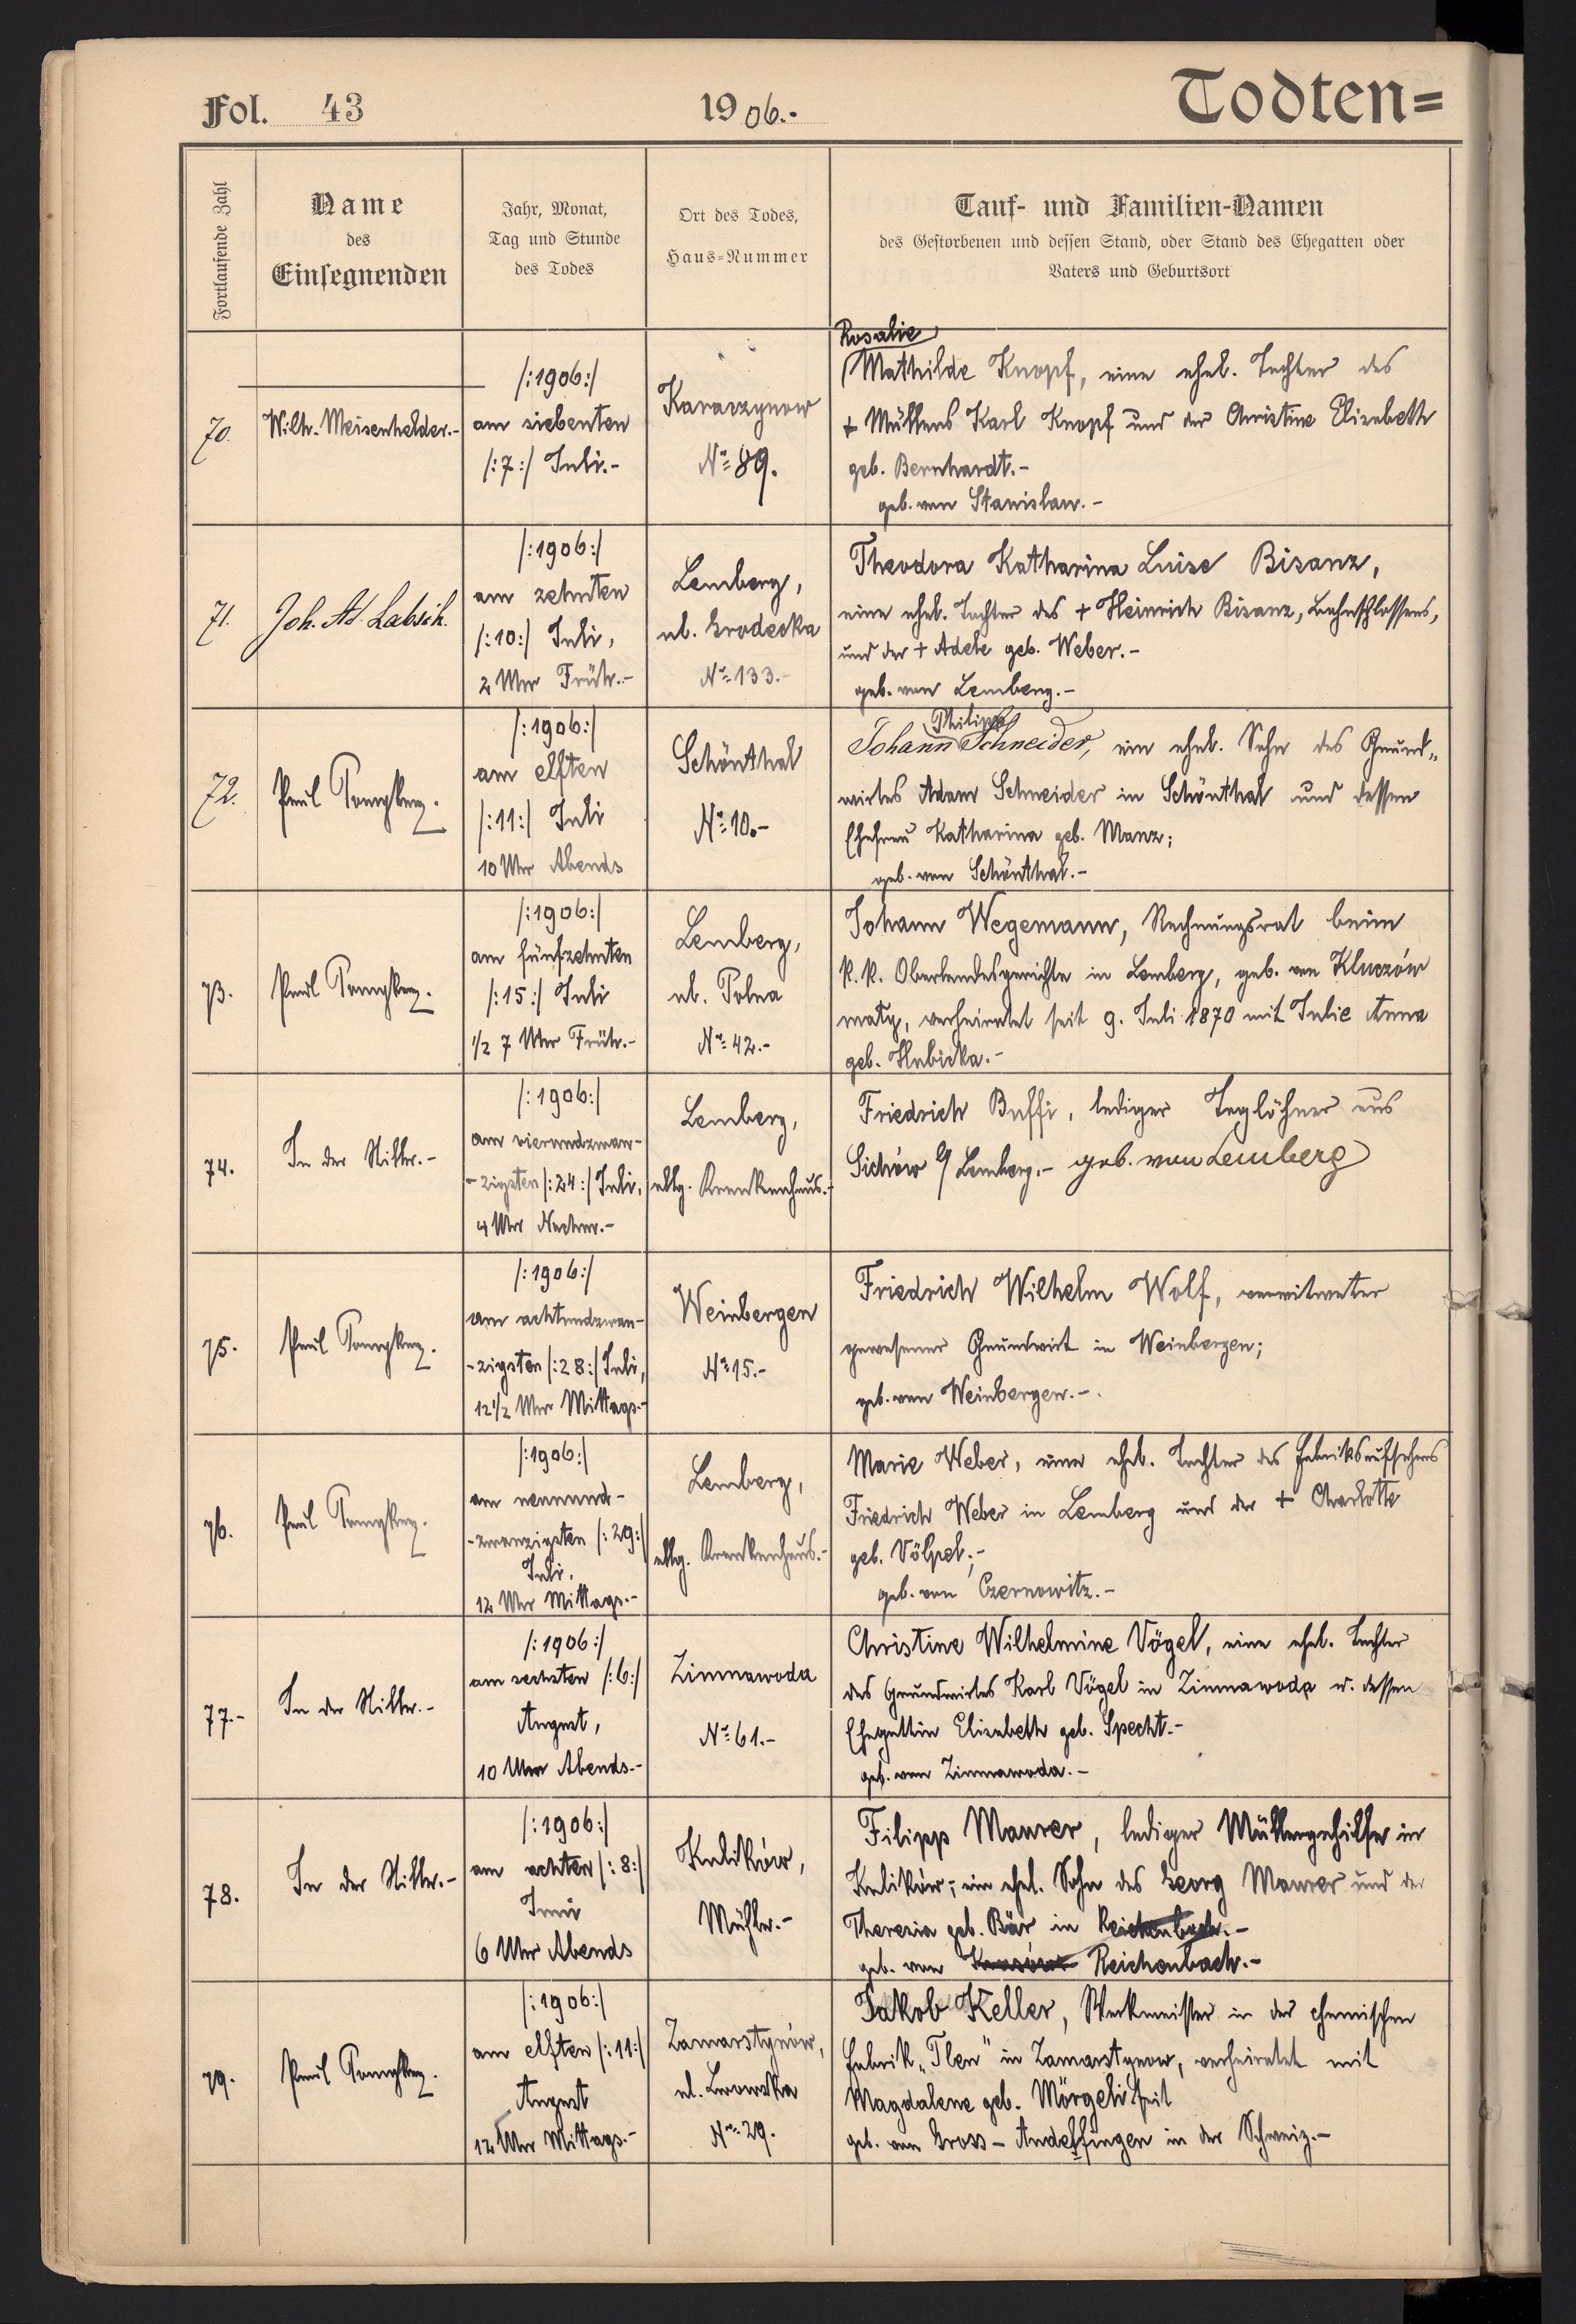 Fol. 43
1906.-
Todten=
Fortlaufende Zahl
Name
des
Einsegnenden
Jahr, Monat,
Tag und Stunde
des Todes
Ort des Todes,
Haus=Nummer
Tauf- und Familien-Namen
des Gestorbenen und dessen Stand, oder Stand des Ehegatten oder
Vaters und Geburtsort
70.
Wilh. Meisenhelder.-
/:1906:/
am siebenten
/:7:/ Juli.-
Karaczynow
No 89.
Rosalie
Mathilde Knopf, eine ehel. Tochter des
+ Müllers Karl Knopf und der Christine Elisabeth
geb. Bernhardt.-
geb. von Stanislau.-
71.
Joh. Ad. Labsik.
/:1906:/
am zehnten
/:10:/ Juli,
2 Uhr Früh.-
Lemberg,
ul. Grodecka
No 133.-
Theodora Katharina Luise Bisanz,
eine ehel. Tochter des + Heinrich Bisanz, Bahnschlossers,
und der + Adele geb. Weber.-
geb. von Lemberg.-
72.
Paul
/:1906:/
am elften
/:11:/ Juli
10 Uhr Abends
Schönthal
No 10.-
Philipp
Johann Schneider, ein ehel. Sohn des Grund„
wirtes Adam Schneider in Schönthal und dessen
Ehefrau Katharina geb. Manz;
geb. von Schönthal.-
73.
Paul
/:1906:/
am fünfzehnten
/:15:/ Juli
1/2 7 Uhr Früh.-
Lemberg,
ul. Polna
No 42.-
Johann Wegemann, Rechnungsrat beim
k. k. Oberlandesgerichte in Lemberg, geb. von Kluczów
mały, verheiratet seit 9. Juli 1870 mit Julie Anna
geb. Hubicka.-
74.
In der Stille.-
/:1906:/
am vierundzwan-
-zigsten /:24:/ Juli,
4 Uhr Nachm.-
Lemberg,
allg. Krankenhaus.-
Friedrich Buffi, lediger Taglöhner aus
Sichów b/ Lemberg.- geb. von Lemberg
75.
Paul
/:1906:/
am achtundzwan-
-zigsten /:28:/ Juli,
12 1/2 Uhr Mittags.-
Weinbergen
No 15.-
Friedrich Wilhelm Wolf, verwitweter
gewesener Grundwirt in Weinbergen;
geb. von Weinbergen.-
76.
Paul
/:1906:/
am neunund-
-zwanzigsten /:29:/
Juli,
12 Uhr Mittags.-
Lemberg,
allg. Krankenhaus.-
Marie Weber, eine ehel. Tochter des Fabriksaufsehers
Friedrich Weber in Lemberg und der + Charlotte
geb. Völpel;-
geb. von Czernowitz.-
77.-
In der Stille.-
/:1906:/
am sechsten /:6:/
August,
10 Uhr Abends.-
Zimnawoda
No 61.-
Christine Wilhelmine Vögel, eine ehel. Tochter
des Grundwirtes Karl Vögel in Zimnawoda u. dessen
Ehegattin Elisabeth geb. Specht.-
geb. von Zimnawoda.-
78.
In der Stille.-
/:1906:/
am achten /:8:/
Juni
6 Uhr Abends
Kulików,
Mühle.-
Filipp Maurer, lediger Müllergehilfe in
Kulików; ein ehel. Sohn des Georg Maurer und der
Theresia geb. Bär in Reichenbach.-
geb. von Reichenbach.-
79.
Paul
/:1906:/
am elften /:11:/
August
12 Uhr Mittags.-
Zamarstynów,
ul. Lwowska
No 29.
Jakob Keller, Werkmeister in der chemischen
Fabrik „Tlen" in Zamarstynow, verheiratet mit
Magdalene geb. Mörgeli seit
geb. von Gross-Andelfingen in der Schweiz.-